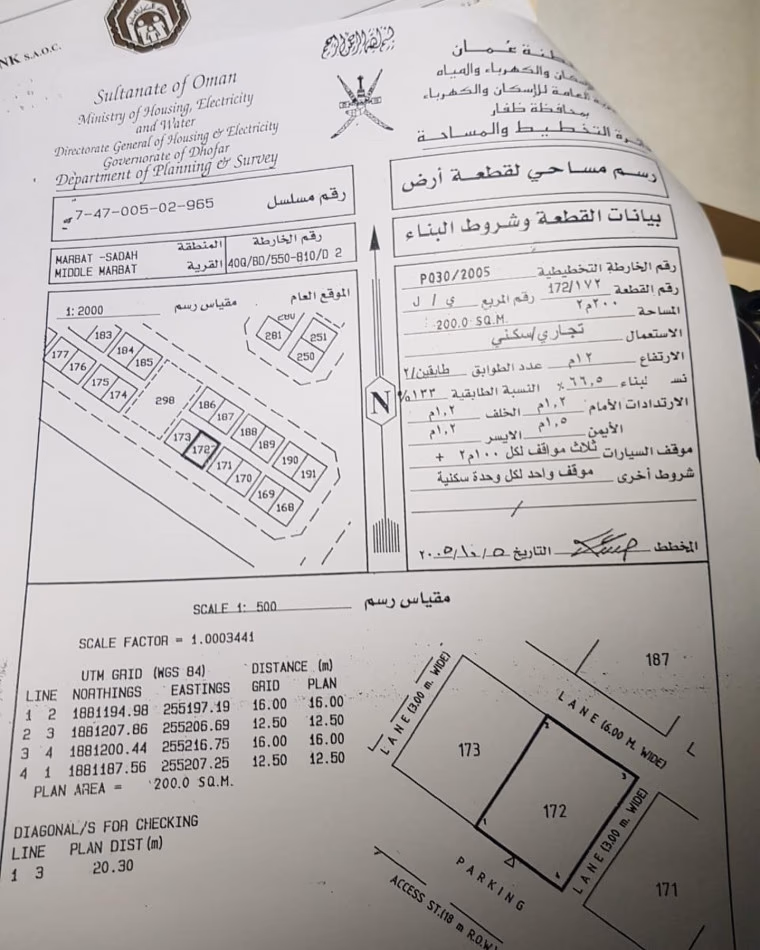 NK S.A.O.C.
Sultanate of Oman
Ministry of Housing, Electricity
and Water
Directorate General of Housing & Electricity
Governorate of Dhofar
Department of Planning & Survey
بسم الله الرحمن الرحيم
عُمان
والكهرباء والمياه
العامة للإسكان والكهرباء
بمحافظة ظفار
التخطيط والمساحة
رقم مسلسل 7-47-005-02-965
رسم مساحي لقطعة أرض
MARBAT -SADAH المنطقة
MIDDLE MARBAT القرية
رقم الخارطة
40Q/BD/550-810/D 2
بيانات القطعة وشروط البناء
الموقع العام
مقياس رسم 1: 2000
183
184
185
177
176
175
174
298
281
251
250
186
187
188
189
190
191
173
172
171
170
169
168
N
رقم الخارطة التخطيطية P030/2005
رقم القطعة 172/١٧٢ رقم المربع ي / ل
المساحة ٢٠٠م٢
200.0 SQ.M.
الاستعمال تجاري/سكني
الارتفاع ١٢م عدد الطوابق طابقين/٢
لبناء ٦٦,٥ % النسبة الطابقية ١٣٣%
الارتدادات الأمام ١,٢م الخلف ١,٢م
الأيمن ١,٥م الايسر ١,٢م
موقف السيارات ثلاث مواقف لكل ١٠٠م٢ +
شروط أخرى موقف واحد لكل وحدة سكنية
المخطط التاريخ ٢٠٠٥/١٠/٥
SCALE 1: 500 مقياس رسم
SCALE FACTOR = 1.0003441
UTM GRID (WGS 84) DISTANCE (m)
LINE NORTHINGS EASTINGS GRID PLAN
1 2 1881194.98 255197.19 16.00 16.00
2 3 1881207.86 255206.69 12.50 12.50
3 4 1881200.44 255216.75 16.00 16.00
4 1 1881187.56 255207.25 12.50 12.50
PLAN AREA = 200.0 SQ.M.
DIAGONAL/S FOR CHECKING
LINE PLAN DIST(m)
1 3 20.30
187
LANE (3.00 m. WIDE)
LANE (6.00 M. WIDE)
L
173
172
LANE (3.00 m. WIDE)
171
PARKING
ACCESS ST.(18 m R.O.W.)